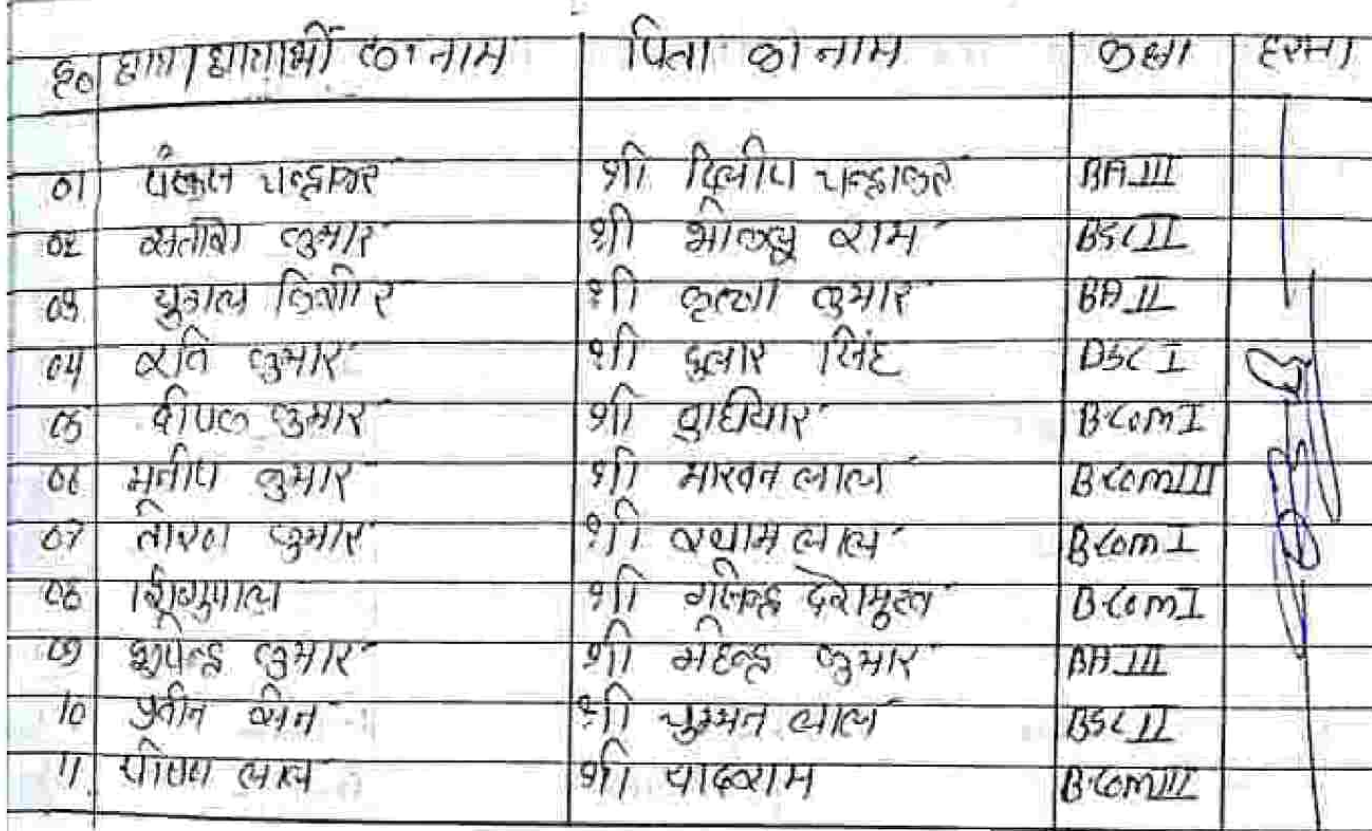 क्र० छात्र/छात्राओं का नाम पिता का नाम कक्षा हस्ता
01 पंकज चन्द्राकर श्री दिलीप चन्द्राकर BA III
02 सतीश कुमार श्री भोलू राम BSC II
03 युगल किशोर श्री कृष्णा कुमार BA II
04 रवि कुमार श्री दुलार सिंह BSC I
05 दीपक कुमार श्री B.COM I
06 मनीष कुमार श्री माखन लाल B.COM III
07 तोरण कुमार श्री श्याम लाल B.COM I
08 शिशुपाल श्री गजेन्द्र देशमुख B.COM I
09 कुमार श्री महेन्द्र कुमार BA III
10 प्रवीन सेन श्री चुम्मन लाल BSC II
11 लाल श्री यादराम B.COM III